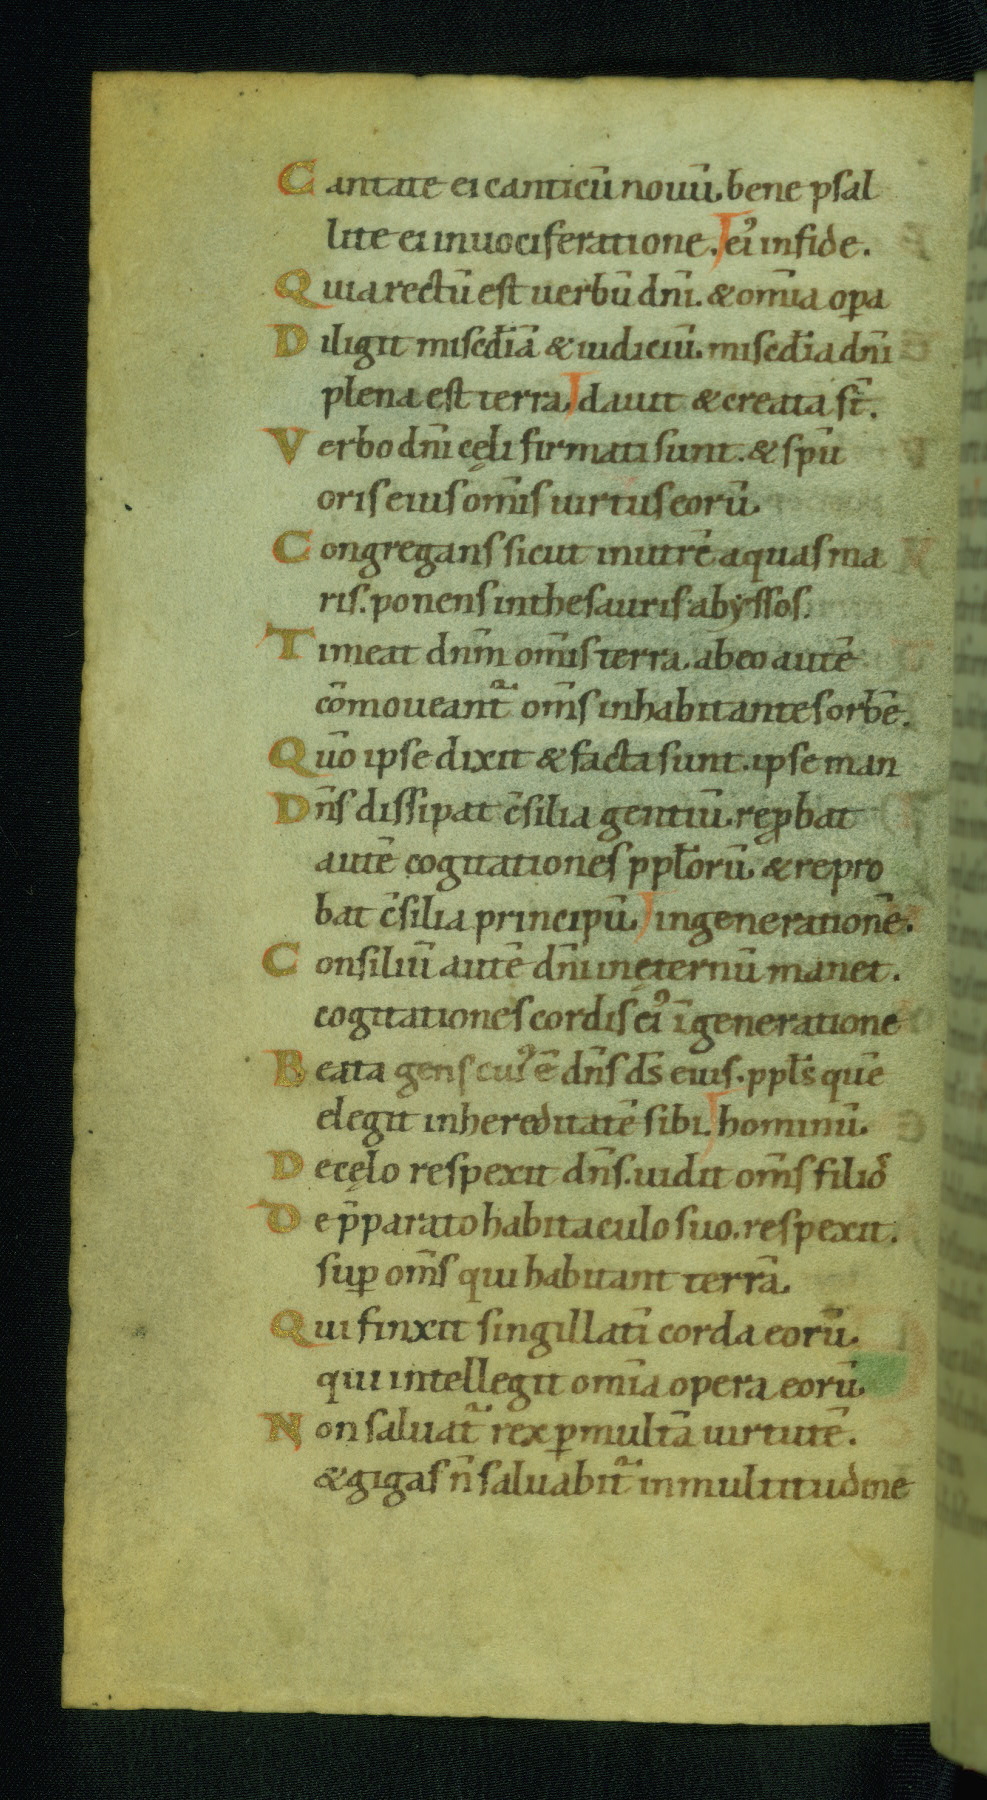 Cantate ei canticū nouū. bene psal
lite ei inuociferatione. eiꝰ infide.
Quia rectū est uerbū dn̄i. & om̄ia oꝑa
Diligit misc̄diā & iudiciū. misc̄dia dn̄i
plena est terra. dauit & creata st̄.
Verbo dn̄i cęli firmati sunt. & sp̄u
oris eius om̄is uirtus eorū.
Congregans sicut inutrē aquas ma
ris. ponens inthesauris abyssos.
Timeat dn̄m om̄is terra. abeo autē
cōmoueant᷑ om̄s inhabitantes orbē.
Qūo ipse dixit & facta sunt. ipse man
Dn̄s dissipat c̄silia gentiū. reꝓbat
autē cogitationes ppłorū & repro
bat c̄silia principū. ingenerationē.
Consiliū autē dn̄i inęternū manet.
cogitationes cordis eiꝰ ī generatione
Beata gens cuiꝰ ē dn̄s ds̄ eius. ppłs quē
elegit inhereditatē sibi. hominū.
De cęlo respexit dn̄s. uidit om̄s filio᷒
De p̄parato habitaculo suo. respexit.
suꝑ om̄s qui habitant terrā.
Qui finxit singillatī corda eorū.
qui intellegit om̄ia opera eorū.
Non saluat᷑ rex ꝑmultā uirtutē.
& gigas n̄ saluabit᷑ inmultitudine